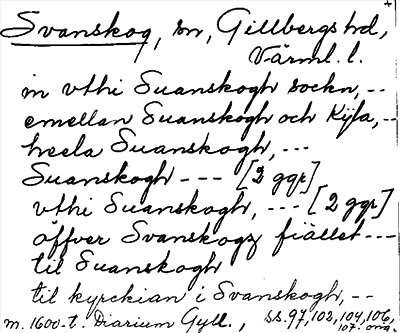 Svanskog, sn, Gillbergs hd,
Värml. l.
in vthi Suanskogh sockn, --
emellan Suanskogh och Kijla, --
heela Suanskogh, ---
Suanskogh --- [2 ggr]
vthi Suanskogh, --- [2 ggr]
öffver Svanskogz fiället ---
til Suanskogh
til kyrckian i Svanskogh, --
m. 1600-t. Diarium Gyll., ss. 97, 102, 104, 106,
107. orig.